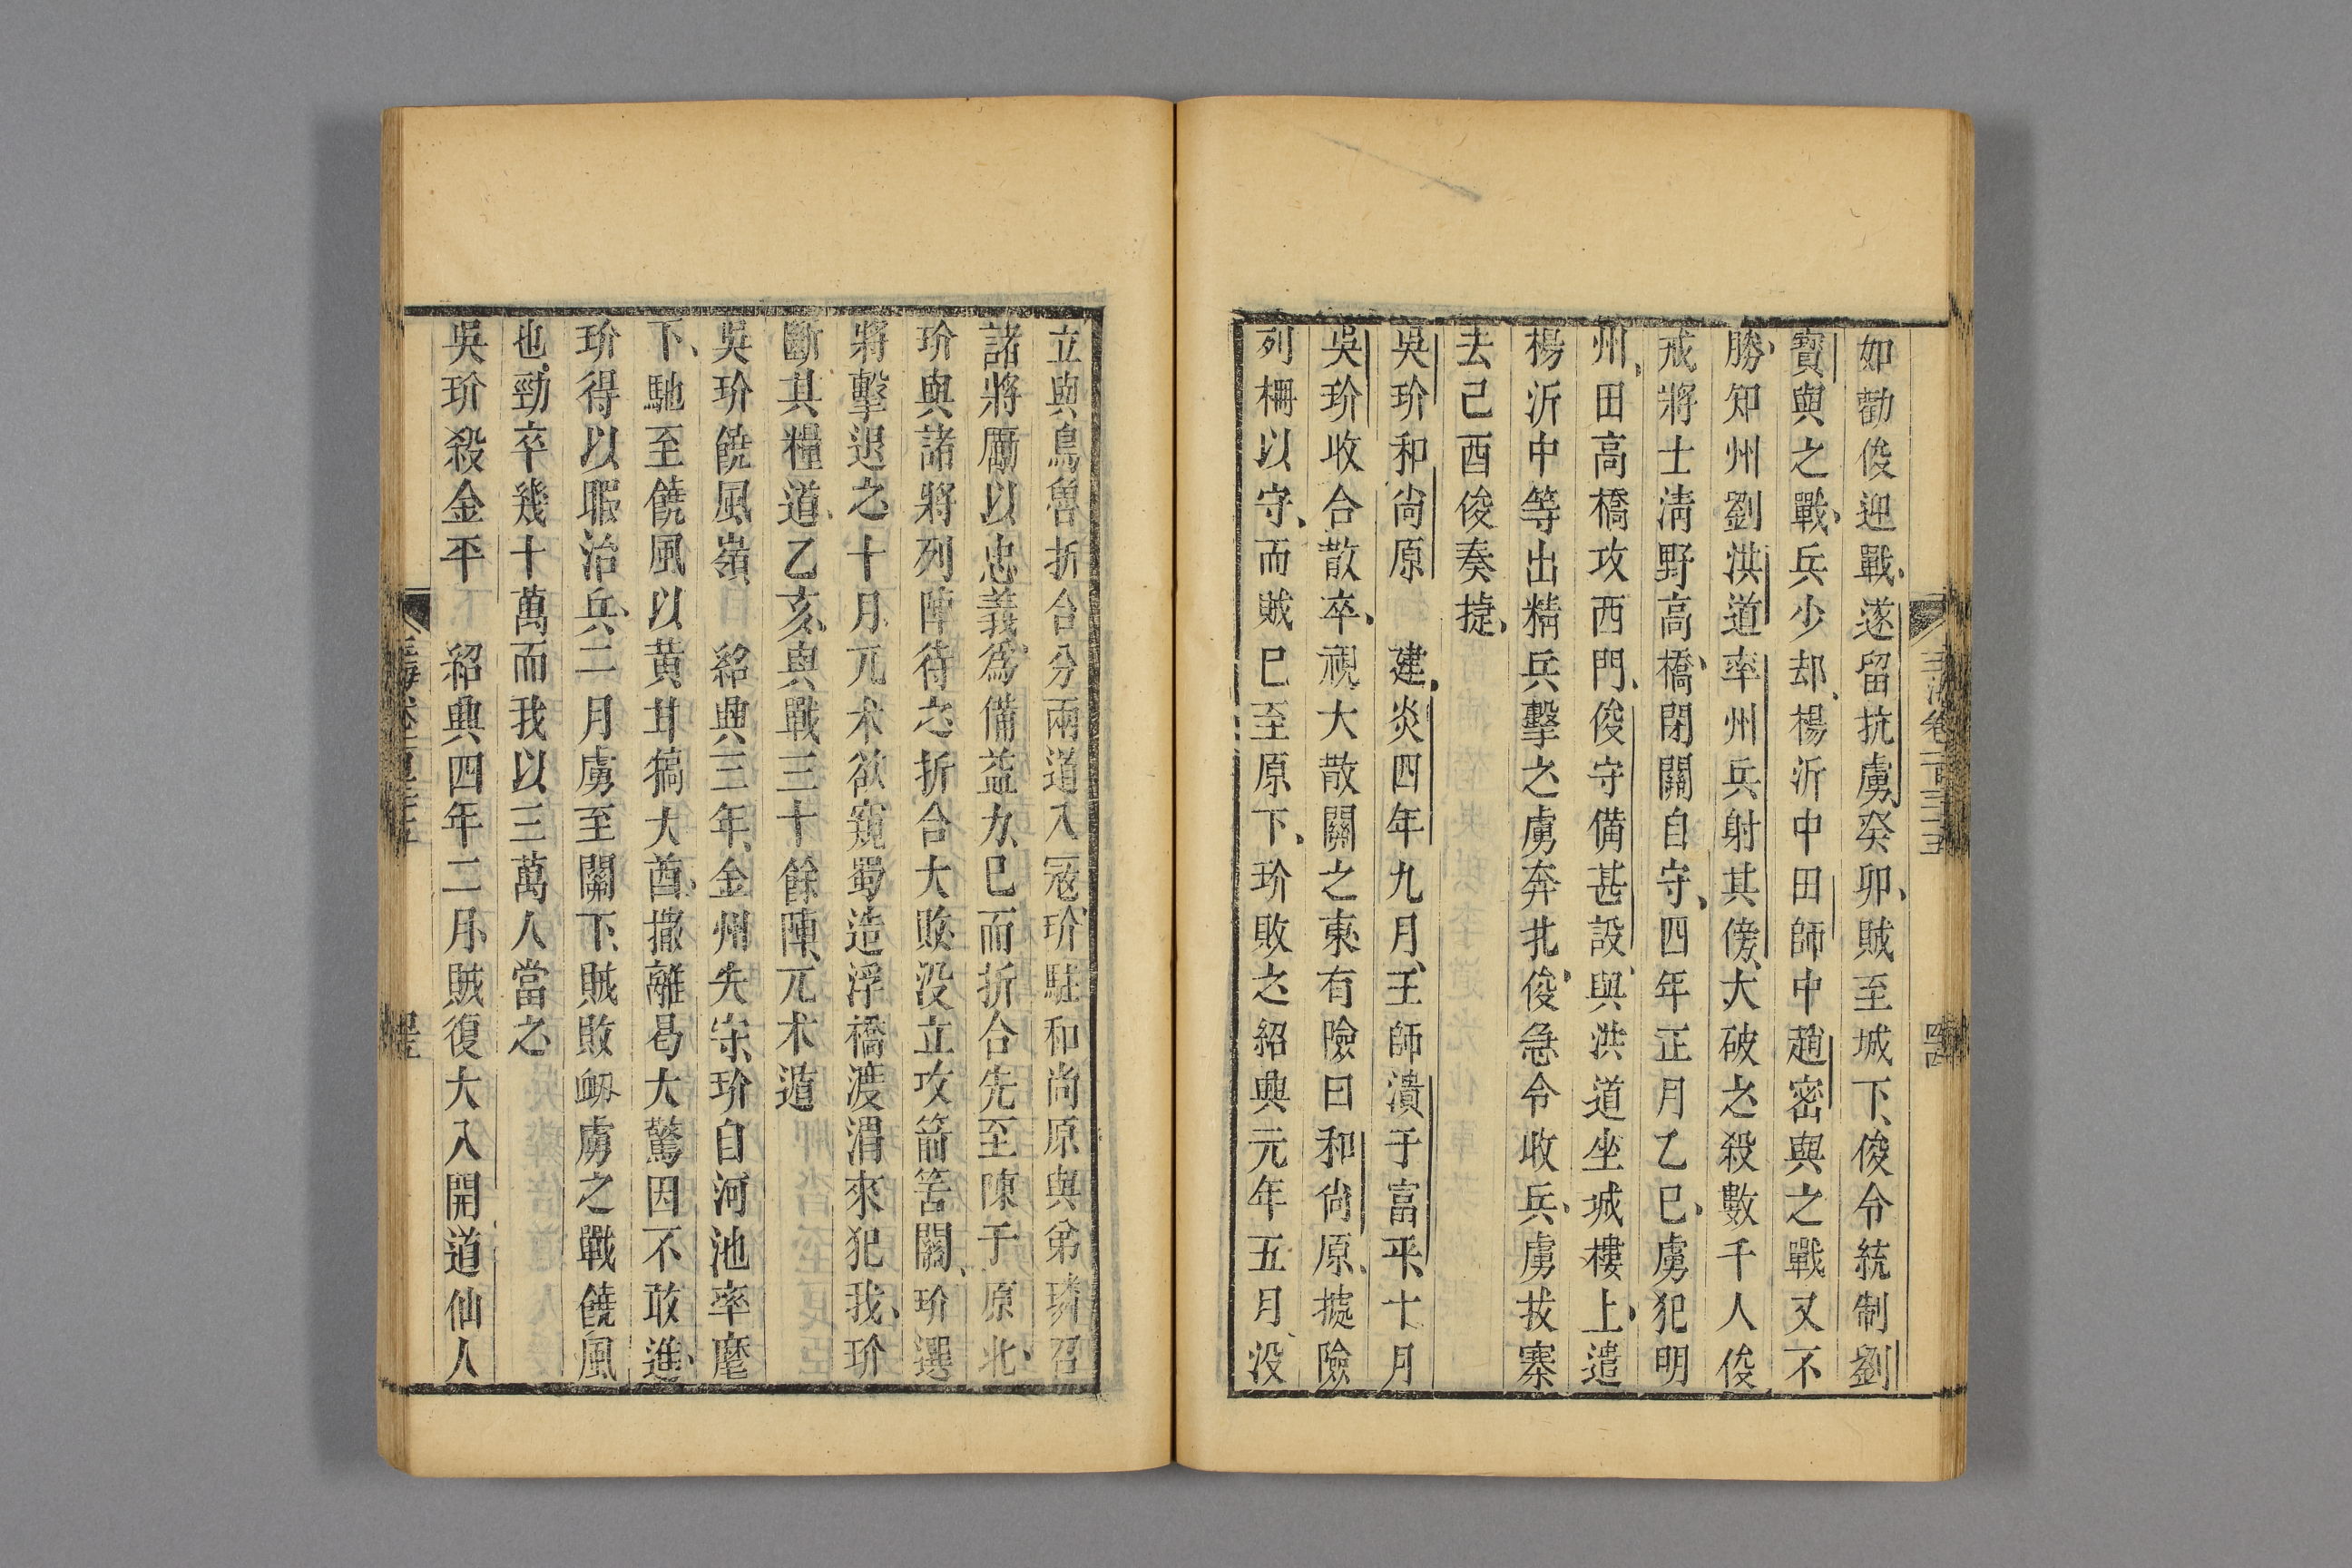 如勸俊迎戰遂留抗虜癸卯賊至城下俊令統制劉
寶與之戰兵少却楊沂中田師中趙密與之戰又不
勝知州劉洪道率州兵射其傍大破之殺數千人俊
戒將士清野高橋閉關自守四年正月乙巳虜犯明
州田高橋攻西門俊守備甚設與洪道坐城樓上遣
楊沂中等出精兵擊之虜奔北俊急令收兵虜拔寨
去己酉俊奏捷
吳玠和尚原　建炎四年九月王師潰于富平十月
吳玠收合散卒視大散關之東有險曰和尚原據險
列柵以守而賊已至原下玠敗之紹興元年五月沒
立與烏魯折合分兩道入冦玠駐和尚原與弟璘召
諸將厲以忠義為備益力已而折合先至陳于原北
玠與諸將列陣待之折合大敗没立攻箭筈關玠選
將擊退之十月兀术欲窺蜀造浮橋渡渭來犯我玠
斷其糧道乙亥與戰三十餘陣兀术遁
吳玠饒風嶺　紹興三年金州失守玠自河池率麾
下馳至饒風以黄甘犒大酋撒離曷大驚因不敢進
玠得以暇治兵二月虜至關下賊敗衂虜之戰饒風
也勁卒幾十萬而我以三萬人當之
吳玠殺金平　紹興四年二月賊復大入開道仙人